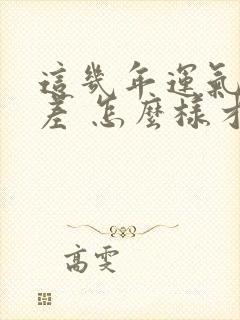 這幾年運氣
差 怎麼樣才
高雯